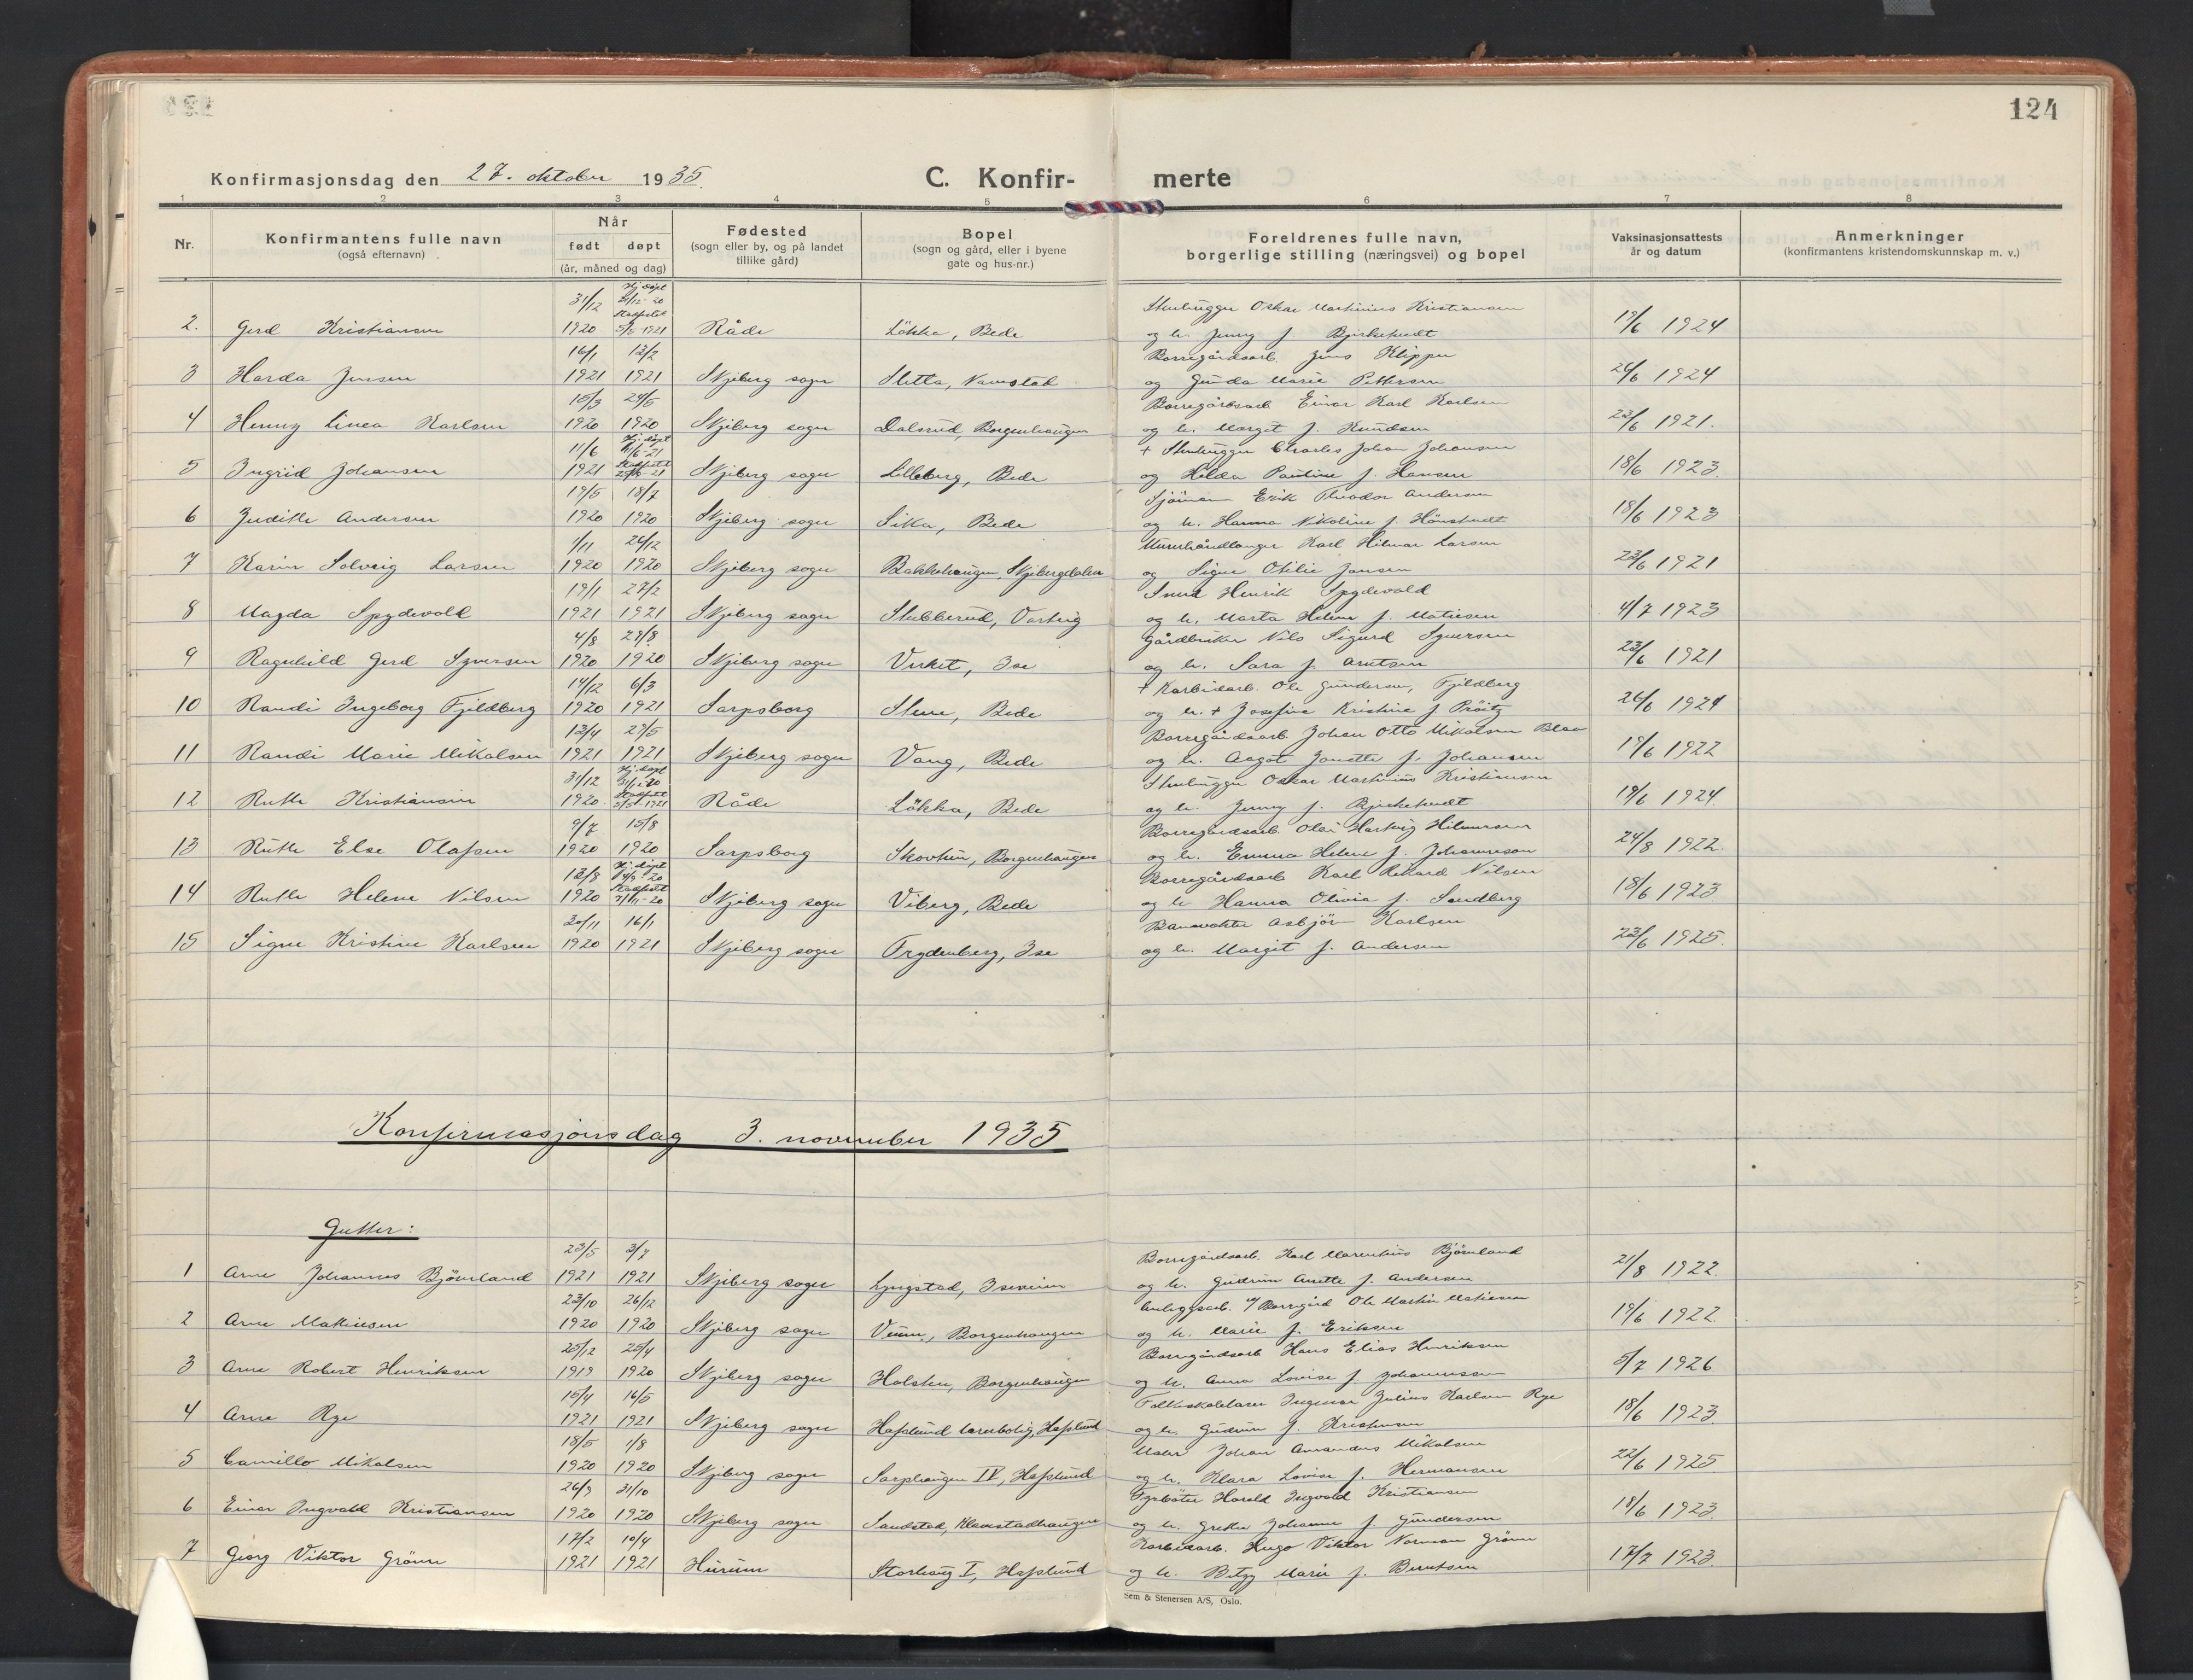 124
Konfirmasjonsdag den 27. oktober 1935.
C. Konfir- merte
1 2 3 4 5 6 7 8
Nr.
Konfirmantens fulle navn
(også efternavn)
Når
født døpt
(år, måned og dag)
Fødested
(sogn eller by, og på landet
tillike gård)
Bopel
(sogn og gård, eller i byene
gate og hus-nr.)
Foreldrenes fulle navn,
borgerlige stilling (næringsvei) og bopel
Vaksinasjonsattests
år og datum
Anmerkninger
(konfirmantens kristendomskunnskap m. v.)
31/12 Hj. døpt 31/12-20 Stadfestet Stenhugger Oskar Martinius Kristiansen
2. Gerd Kristiansen 1920 5/5-1921 Råde Løkka, Bede og h. Jenny f. Bjerketvedt 19/6 1924
16/1 13/2 Borregårdsarb. Jens Klipper
3 Harda Jensen 1921 1921 Skjeberg sogn Sletta, Navestad og Gunda Marie Pettersen 24/6 1924
15/3 24/5 Borregårdsarb. Einar Karl Karlsen
4 Henny Linea Karlsen 1920 1920 Skjeberg sogn Dalsrud, Borgenhaugen og h. Margit f. Knudsen 23/6 1921.
11/6 Hj. døpt 11/6-21 Stadfestet + Stenhugger Charles Johan Johansen
5 Ingrid Johansen 1921 Skjeberg sogn Lilleborg, Bede og Hilda Pauline f. Hansen 18/6 1923.
19/5 18/7 Sjømann Erik Theodor Andersen
6 Judith Andersen 1920 1920 Skjeberg sogn Sika, Bede og h. Hanna Nikoline f. 18/6 1923
1/11 26/12 Murerhåndlanger Karl Hilmar Larsen
7 Karin Solveig Larsen 1920 1920 Skjeberg sogn Bakkehaugen, Skjebergdalen og Signe Otilie Jansen 23/6 1921
19/1 27/2 Smed Henrik Spydevold
8 Magda Spydevold 1921 1921 Skjeberg sogn Stubberud, Varteig og h. Marta Helene f. Matiesen 4/7 1923
4/8 29/8 Gårdbruker Nils Sigurd Syversen
9 Ragnhild Gerd Syversen 1920 1920 Skjeberg sogn Virket, Ise og h. Sara f. Arntsen 23/6 1921
14/12 6/3 + Karbidarb. Ole Gundersen, Fjeldberg
10 Randi Ingeborg Fjeldberg 1920 1921 Sarpsborg Stene, Bede og h. + Josefine Kristine f. Prøitz 26/6 1924
13/4 29/5 Borregårdsarb. Johan Otto Mikalsen Blaa
11 Randi Marie Mikalsen 1921 1921 Skjeberg sogn Vang, Bede og h. Aagot Janette f. Johansen 19/6 1922
31/12 Hj. døpt 31/12-20 Stadfestet Stenhugger Oskar Martinius Kristiansen
12 Ruth Kristiansen 1920. 5/5-1921 Råde Løkka, Bede og h. Jenny f. Bjerketvedt 19/6 1924.
9/7 15/8 Borregårdsarb. Olai Hartvig Hilmersen
13 Ruth Else Olafsen 1920 1920 Sarpsborg Skovheim, Borgenhaugen og h. Emma Helene f. Johannesen 24/8 1922.
13/8 Hj. døpt Stadfestet Borregårdsarb Karl Rikard Nilsen
14 Ruth Helene Nilsen 1920 Skjeberg sogn Viberg, Bede og h. Hanna Olivia f. Sandberg 18/6 1923
30/11 16/1 Banevokter Asbjør Karlsen
15 Signe Kristine Karlsen 1920 1921 Skjeberg sogn Frydenberg, Ise og h. Margit f. Andersen 23/6 1925.
Konfirmasjonsdag 3. november 1935
Gutter:
23/5 3/7 Borregårdsarb. Karl Marentius Bjørnland
1 Arne Johannes Bjørnland 1921 1921 Skjeberg sogn Lyngstad, Iseveien og h. Gudrun Anette f. Andersen 21/8 1922.
23/10 26/12 Anleggsarb. v/ Borregård Ole Martin Matiesen
2 Arne Mathiesen 1920 1920 Skjeberg sogn Borgenhaugen og h. Marie f. Eriksen 19/6 1922.
25/12 25/4 Borregårdsarb Hans Elias Henriksen
3 Arne Robert Henriksen 1919 1920 Skjeberg sogn Holsten, Borgenhaugen og h. Anna Lovise f. Johannessen 5/7 1926
15/4 16/5 Folkeskolelærer Ingemar Julius Karlsen Rye
4 Arne Rye 1921 1921 Skjeberg sogn Hafslund lærerbolig, Hafslund og h. Gudrun f. Kristensen 18/6 1923.
18/5 1/8 Maler Johan Amandus Mikalsen
5 Camillo Mikalsen 1920 1920 Skjeberg sogn Sarphaugen IV, Hafslund og h. Klara Lovise f. Hermansen 22/6 1925
26/9 31/10 Fyrbøter Harald Ingvald Kristiansen
6 Einar Ingvald Kristiansen 1920 1920 Skjeberg sogn Sandstad, Klavestadhaugen og h. Grethe Johanne f. Gundersen 18/6 1923.
17/2 10/4 Karbidarb. Hugo Viktor Norman Grønn
7 Georg Viktor Grønn 1921 1921 Hurum Storhaug I, Hafslund og h. Betzy Marie f. Berntsen 17/7 1923.
Sem & Stenersen A/S, Oslo.